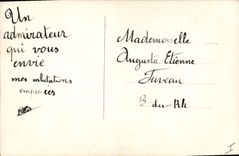 Un
admirateur
qui vous
envie
mes salutations
empressées
Mademoiselle
Augusta Etienne
Fuveau
B-du-Rh
I